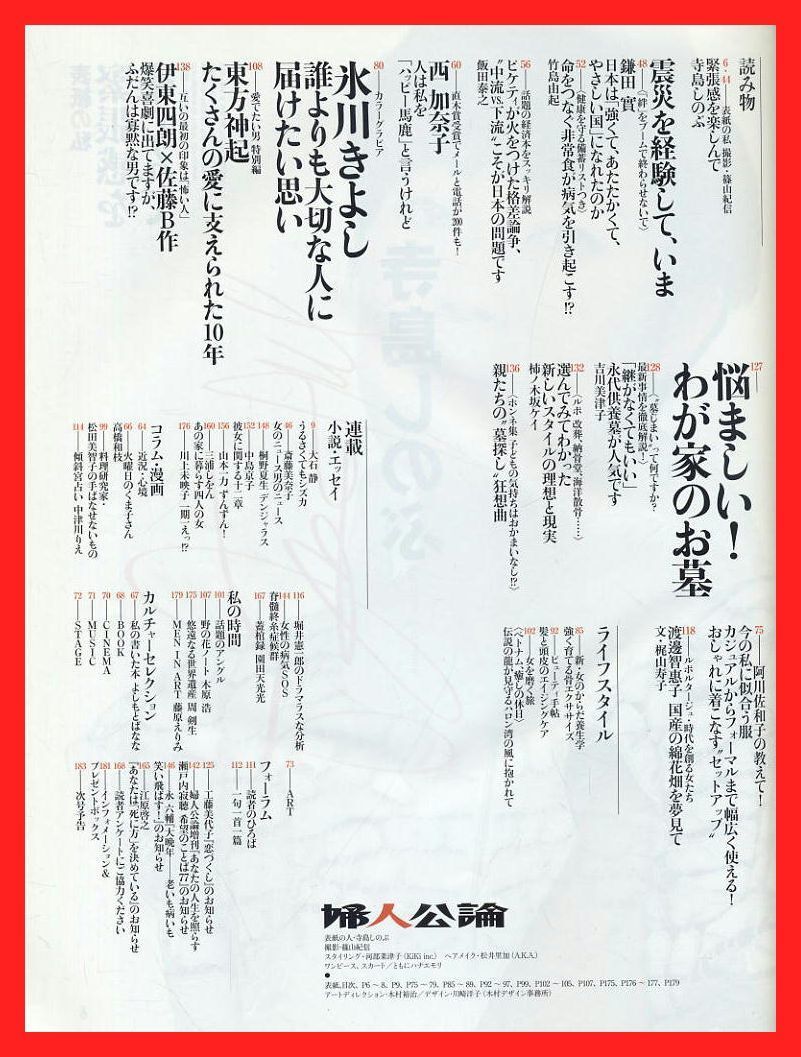 読み物
6・44 表紙の私 撮影・篠山紀信
緊張感を楽しんで
寺島しのぶ
震災を経験して、いま
48 〈「絆」をブームで終わらせないで〉
鎌田 實
日本は「強くて、あたたかくて、
やさしい国」になれたのか
52 〈健康を守る備蓄リストつき〉
命をつなぐ非常食が病気を引き起こす!?
竹島由起
56 話題の経済本をスッキリ解説
ピケティが火をつけた格差論争、
“中流vs.下流”こそが日本の問題です
飯田泰之
60 直木賞受賞でメールと電話が200件も!
西 加奈子
人は私を
「ハッピー馬鹿」と言うけれど
80 カラーグラビア
氷川きよし
誰よりも大切な人に
届けたい思い
108 愛でたい男 特別編
東方神起
たくさんの愛に支えられた10年
138 互いの最初の印象は「怖い人」
伊東四朗×佐藤B作
爆笑喜劇に出てますが、
ふだんは寡黙な男です!?
127
悩ましい!
わが家のお墓
128 〈“墓じまい”って何ですか?
最新事情を徹底解説!〉
「継がなくてもいい」
永代供養墓が人気です
吉川美津子
132 〈ルポ 改葬、納骨堂、海洋散骨……〉
選んでみてわかった
新しいスタイルの理想と現実
柿ノ木坂ケイ
136 〈ホンネ集 子どもの気持ちはおかまいなし!?〉
親たちの“墓探し”狂想曲
連載
小説・エッセイ
9 大石 静
うるさくてもシズカ
46 斎藤美奈子
女のニュース男のニュース
148 桐野夏生 デンジャラス
152 中島京子
彼女に関する十二章
156 山本一力 ずんずん!
160 三浦しをん
あの家に暮らす四人の女
176 川上未映子 一期一えっ!?
コラム・漫画
64 近況・心境
66 火曜日のくま子さん
高橋和枝
99 料理研究家・
松田美智子の手ばなせないもの
114 傾斜宮占い 中津川りえ
75 阿川佐和子の教えて!
今の私に似合う服
カジュアルからフォーマルまで幅広く使える!
おしゃれに着こなす“セットアップ”
118 ルポルタージュ・時代を創る女たち
渡邊智惠子 国産の綿花畑を夢見て
文・梶山寿子
ライフスタイル
85 新・女のからだ養生学
強く育てる骨エクササイズ
92 ビューティ手帖
髪と頭皮のエイジングケア
102 女を磨く旅
〈ベトナム、癒しの休日〉
伝説の龍が見守るハロン湾の風に抱かれて
116 堀井憲一郎のドラマラスな分析
144 女性の病気SOS
脊髄終糸症候群
167 蓋棺録 園田天光光
私の時間
101 話題のアングル
107 野の花ノート 木原 浩
175 悠遠なる世界遺産 周 剣生
179 MEN IN ART 藤原えりみ
カルチャーセレクション
67 私の書いた本 よしもとばなな
68 BOOK
70 CINEMA
71 MUSIC
72 STAGE
73 ART
フォーラム
111 読者のひろば
112 一句一首一篇
125 工藤美代子『恋づくし』のお知らせ
142 婦人公論増刊「あなたの人生を照らす
瀬戸内寂聴 希望のことば77」のお知らせ
146 永 六輔『大晩年 老いも病いも
笑い飛ばす!』のお知らせ
165 江原啓之
『あなたは「死に方」を決めている』のお知らせ
168 読者アンケートにご協力ください
181 インフォメーション&
プレゼントボックス
183 次号予告
婦人公論
表紙の人・寺島しのぶ
撮影・篠山紀信
スタイリング・河部菜津子(KiKi inc.) ヘアメイク・松井里加(A.K.A.)
ワンピース、スカート/ともにハナエモリ
●
表紙、目次、P6〜8、P9、P75〜79、P85〜89、P92〜97、P99、P102〜105、P107、P175、P176〜177、P179
アートディレクション・木村裕治/デザイン・川崎洋子(木村デザイン事務所)